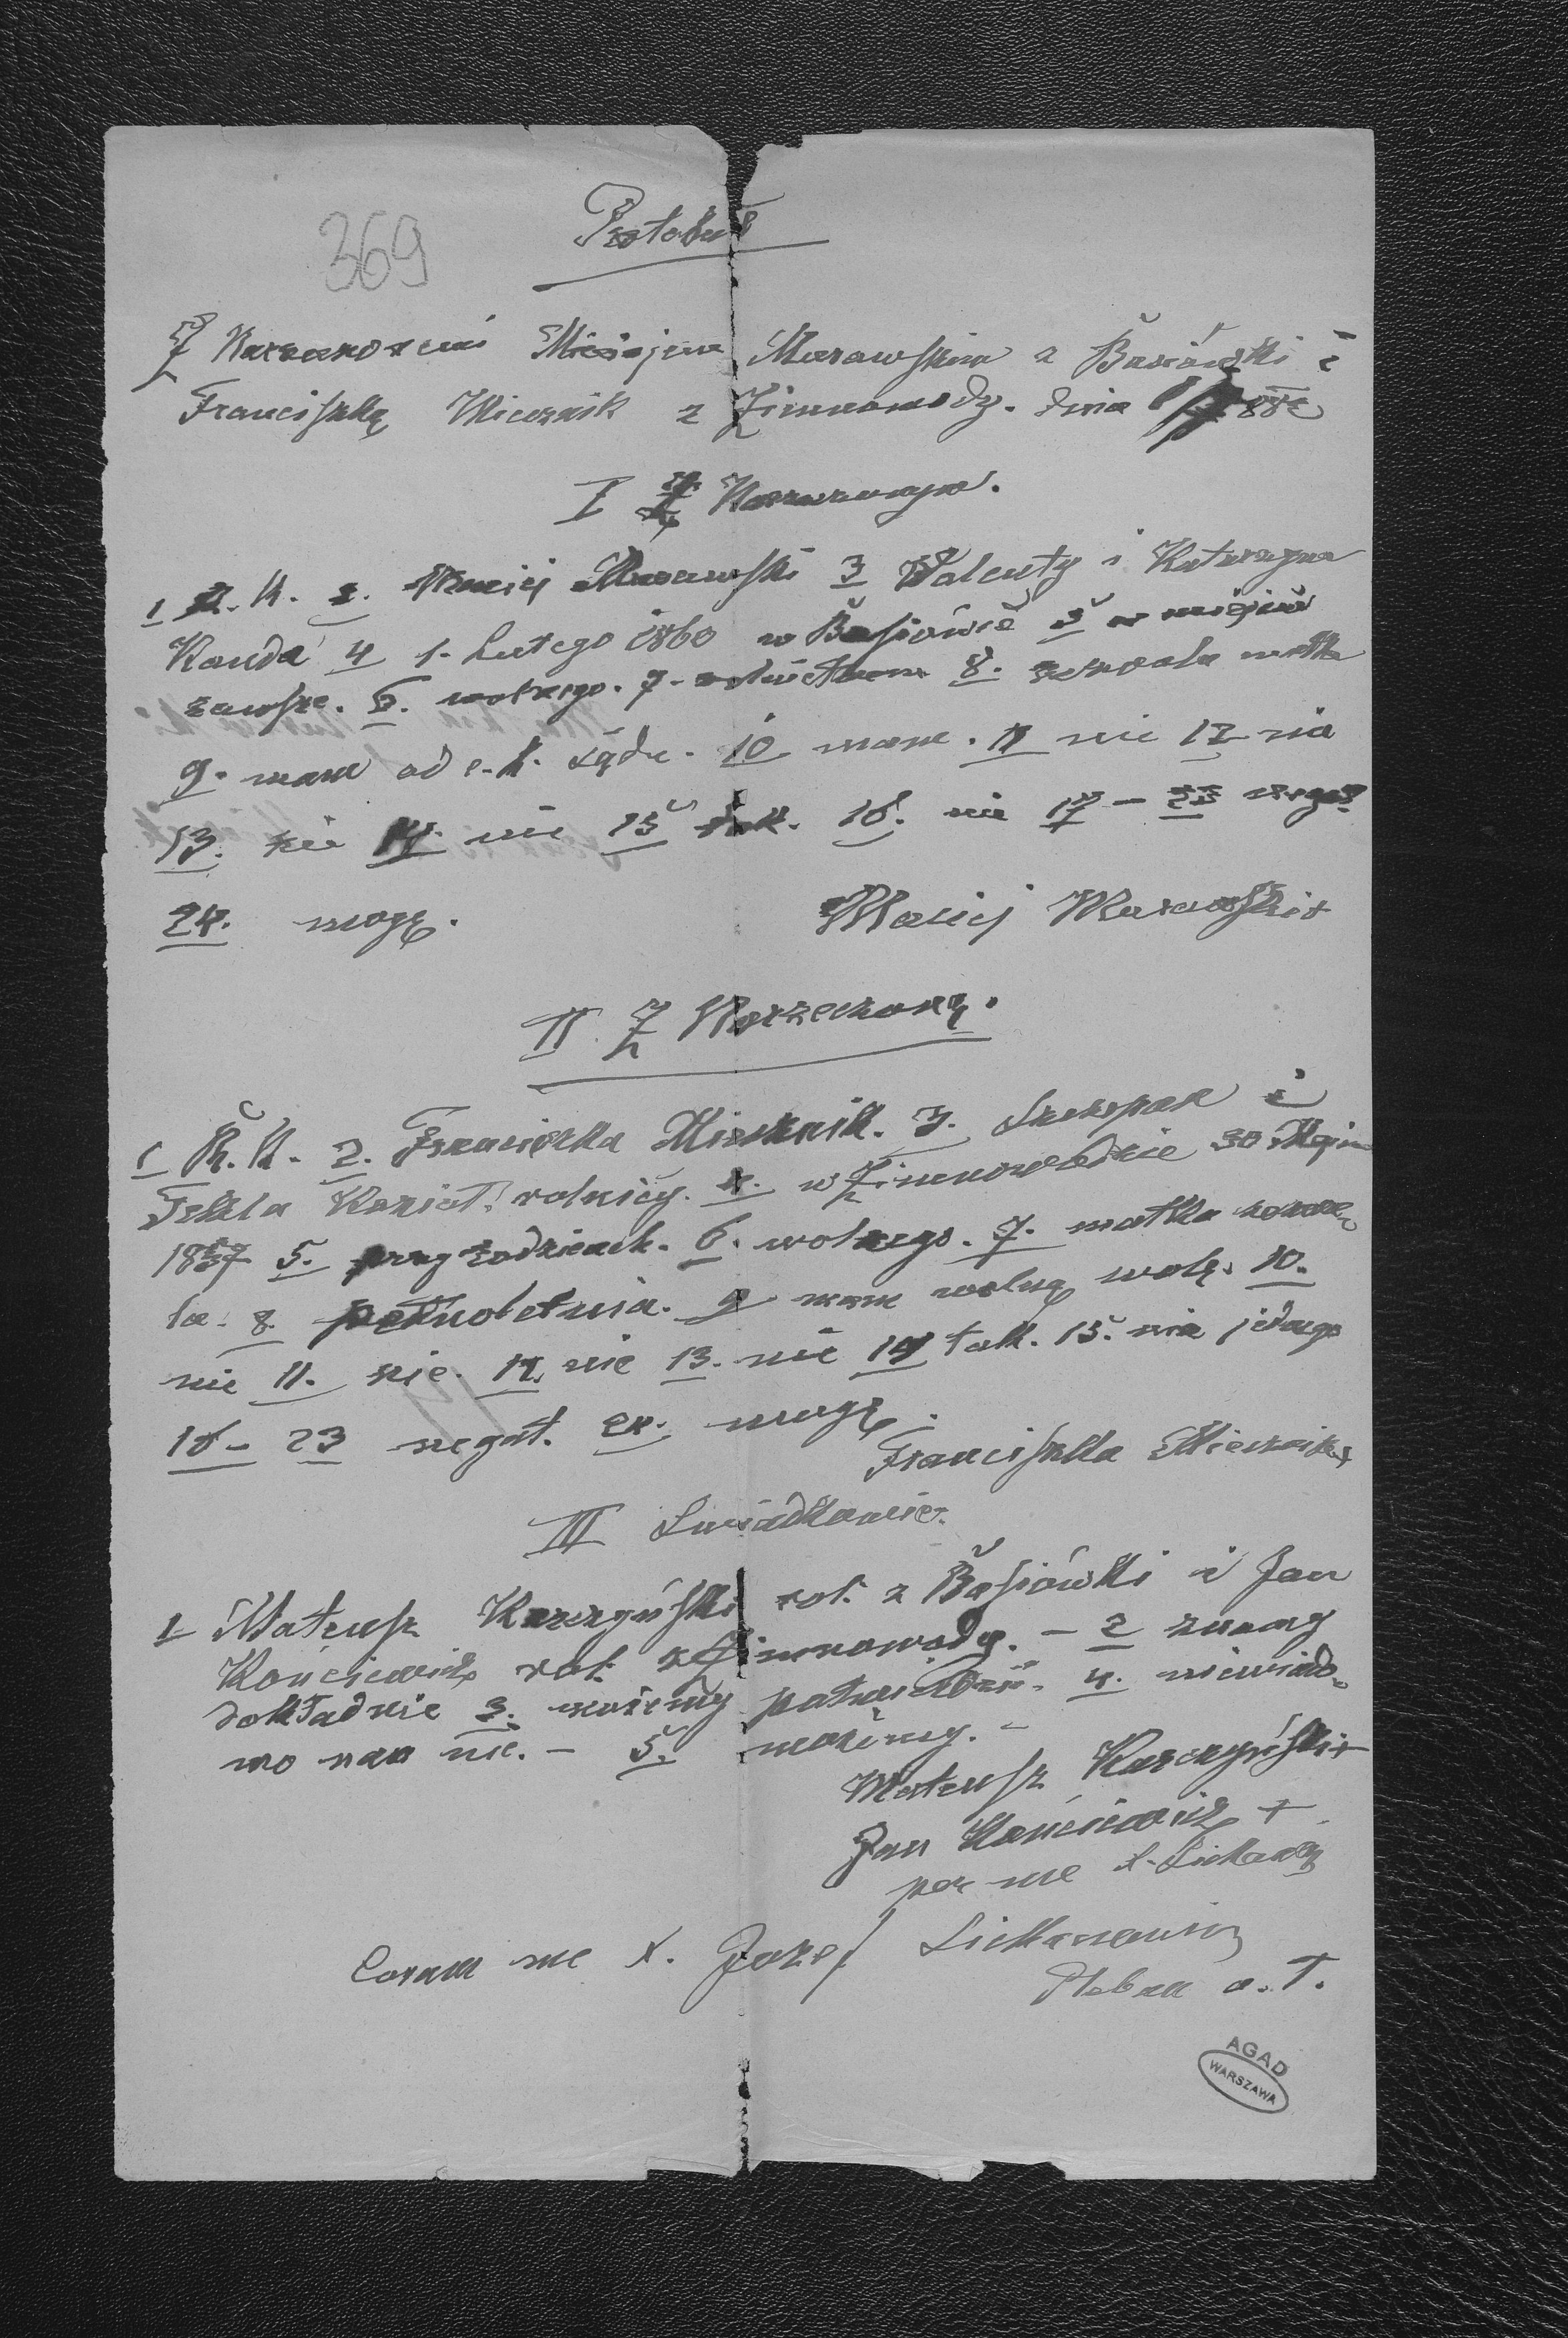 369
Protokuł
Z Narzeczonemi Maciejem Murawskim z Basiówki i
Franciszką Miecznik z Zimnowody. dnia
I Z Narzeczonym.
1 R. K. 2. Maciej Murawski 3 Walenty i Katarzyna
Kanda 4 1. Lutego 1860 w Basiówce 5 w miejscu
zawsze. 6. wolnego. 7. 8. zezwala matka
9. mam od c. k. sądu. 10 mam. 11 nie 12 nie
13. nie 14. nie 15 tak. 16. nie 17 - 23 negat
24. mogę.
Maciej Murawski +
II Z Narzeczoną.
1 R. K. 2. Franciszka Miecznik. 3. Szczepan i
Tekla rolnicy. 4. w Zimnowodzie 30 Maja
1857 5. przy rodzicach. 6. wolnego. 7. matka zezwa
la. 8. pełnoletnia. 9 mam wolną wolę. 10.
nie 11. nie. 12. nie 13. nie 14 tak. 15. nie jednego
16 - 23 negat. 24. mogę.
Franciszka Miecznik +
III Świadkowie.
1 Mateusz Karczyński rol. z Basiówki i Jan
Kończewicz rol. z Zimnowody. - 2 znamy
dokładnie 3. możemy potwierdzić. 4. niewiado
mo nam nic. - 5. możemy. -
Mateusz Karczyński +
Jan Kończewicz +
per me X.
Coram me X. Józef
Pleban o. T.
AGAD
WARSZAWA